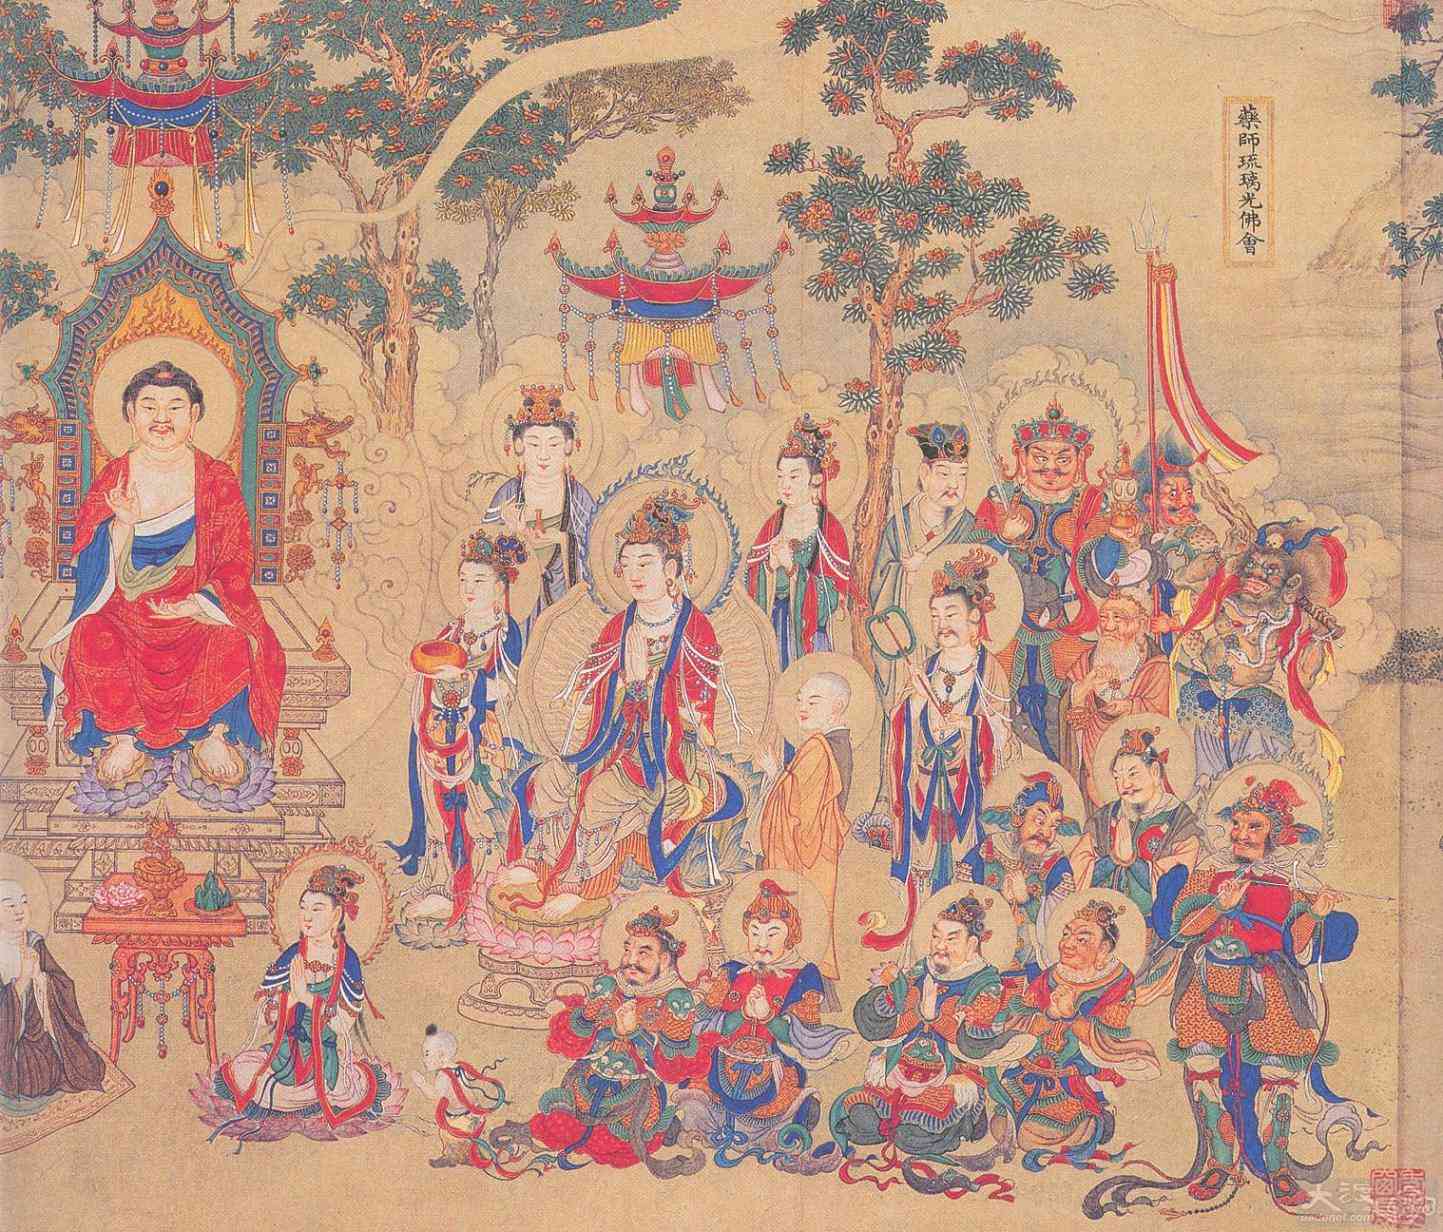 藥師琉璃光佛會